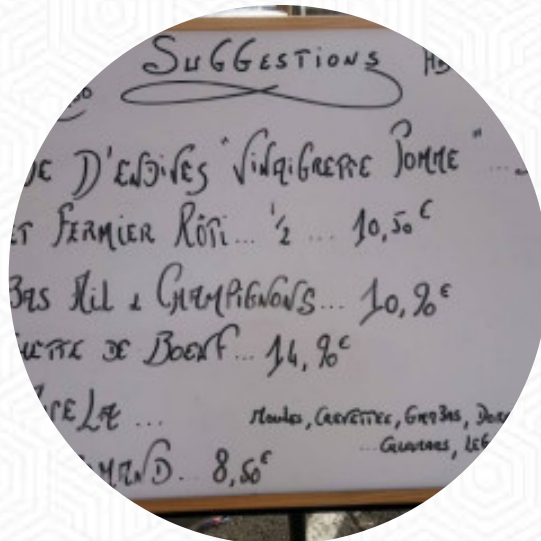 SUGGESTIONS
DE D'ENDIVES "VINAIGRETTE POMME" ...
ET FERMIER RÔTI... 1/2 ... 10,50€
BAS AIL & CHAMPIGNONS... 10,90€
DE BOEUF... 14,90€
ELLA ...
MOULES, CREVETTES, GAMBAS,
... CALAMARS, LEG
MAND... 8,50€